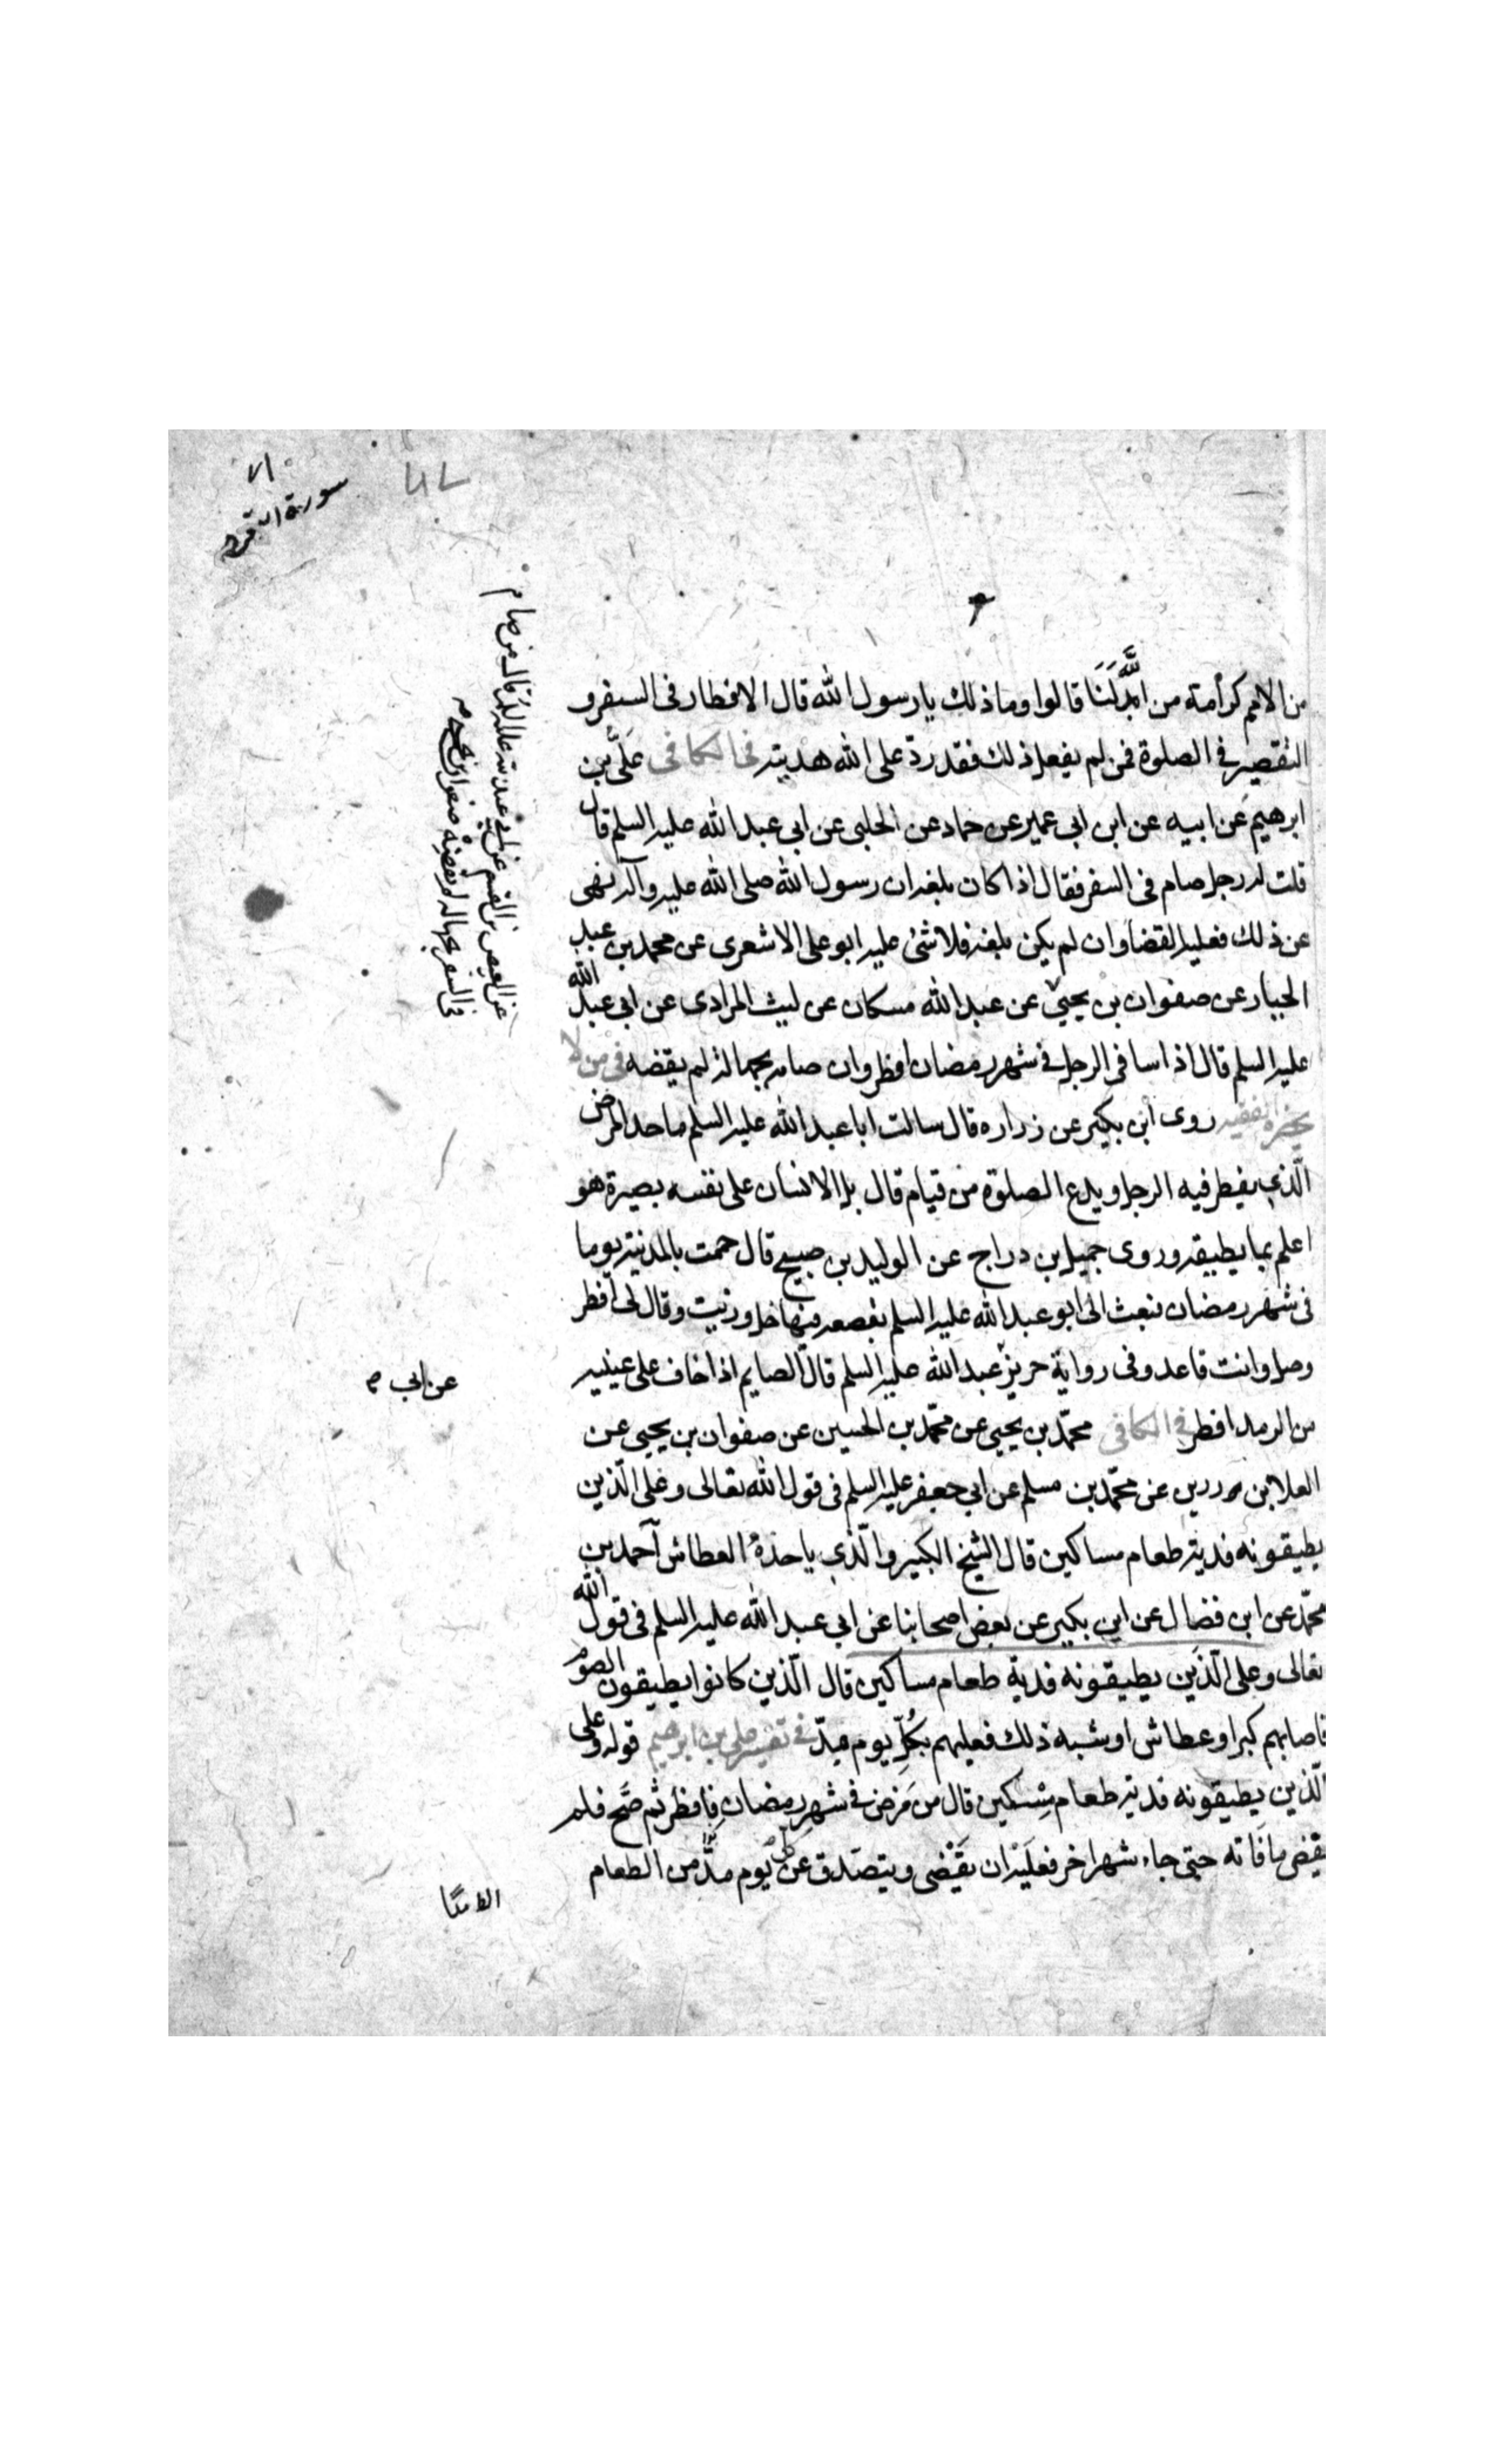 سورة البقره
من الامم كرامة من الله لنا قالوا وما ذلك يا رسول الله قال الافطار في السفر و
التقصير في الصلوة فمن لم يفعل ذلك فقد رد على الله هديته في الكافي علي بن
ابرهيم عن ابيه عن ابن ابي عمير عن حماد عن الحلبي عن ابي عبد الله عليه السلم قال
قلت له رجل صام في السفر فقال اذا كان بلغه ان رسول الله صلى الله عليه وآله نهى
عن ذلك فعليه القضا وان لم يكن بلغه فلا شئ عليه ابو علي الاشعري عن محمد بن عبد
الجبار عن صفوان بن يحيى عن عبد الله مسكان عن ليث المرادي عن ابي عبد الله
عليه السلم قال اذا سافر الرجل في شهر رمضان افطر وان صامه بجهالة لم يقضه في من لا
يحضره الفقيه روى ابن بكير عن زراره قال سالت ابا عبد الله عليه السلم ما حد المرض
الّذي يفطر فيه الرجل ويدع الصلوة من قيام قال بل الانسان على نفسه بصيرة هو
اعلم بما يطيقه وروى جميل بن دراج عن الوليد بن صبيح قال حممت بالمدينة يوما
في شهر رمضان فبعث الى ابو عبد الله عليه السلم بقصعة فيها خل وزيت وقال لى افطر
وصل وانت قاعد وفي رواية حريز عبد الله عليه السلم قال الصايم اذا خاف على عينيه
من الرمد افطر في الكافي محمّد بن يحيى عن محمّد بن الحسين عن صفوان بن يحيى عن
العلا بن رزين عن محمّد بن مسلم عن ابي جعفر عليه السلم في قول الله تعالى وعلى الّذين
يطيقونه فدية طعام مساكين قال الشيخ الكبير والّذي ياخذه العطاش احمد بن
محمّد عن ابن فضال عن ابن بكير عن بعض اصحابنا عن ابي عبد الله عليه السلم في قول الله
تعالى وعلى الّذين يطيقونه فدية طعام مساكين قال الّذين كانوا يطيقون الصوم
فاصابهم كبر او عطاش او شبه ذلك فعليهم بكلّ يوم مدّ في تفسير علي بن ابرهيم قوله وعلى
الّذين يطيقونه فدية طعام مسكين قال من مرض في شهر رمضان فافطر ثم صحّ فلم
يقض ما فاته حتى جاء شهر اخر فعليه ان يقضي ويتصدق عن كل يوم مدّ من الطعام
عن العيص بن القسم عن ابي عبد الله عليه السلم قال من صام
في السفر بجهالة لم يقضه
عن ابي